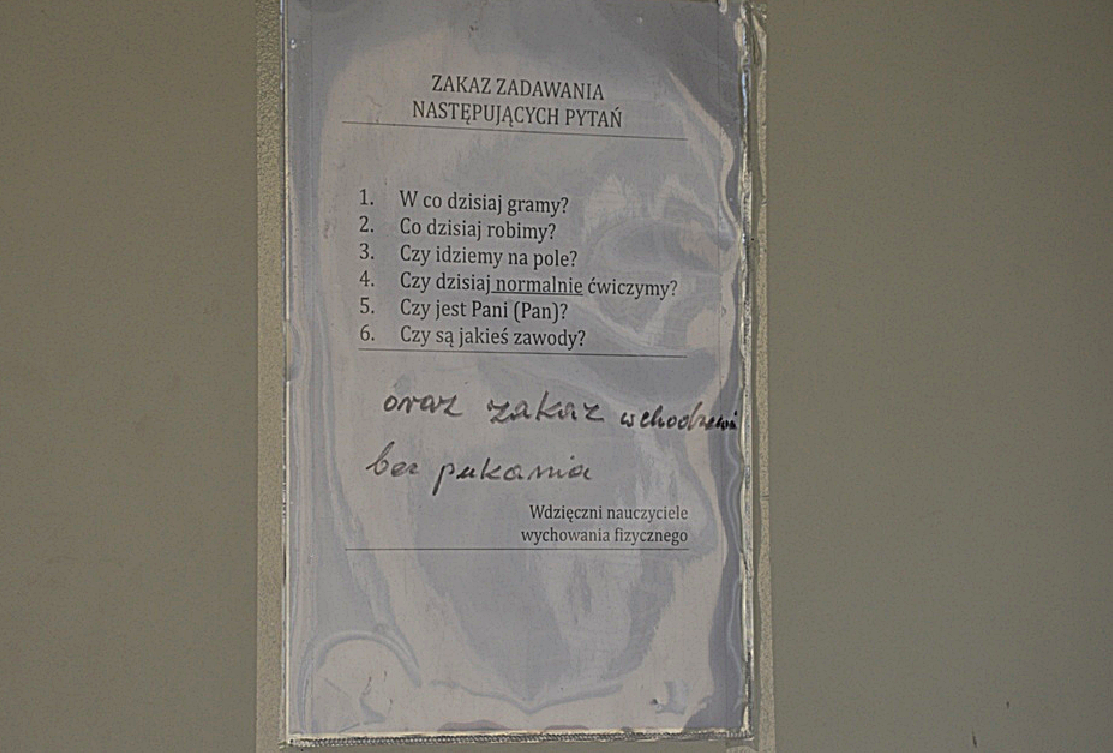 ZAKAZ ZADAWANIA
NASTĘPUJĄCYCH PYTAŃ
1. W co dzisiaj gramy?
2. Co dzisiaj robimy?
3. Czy idziemy na pole?
4. Czy dzisiaj normalnie ćwiczymy?
5. Czy jest Pani (Pan)?
6. Czy są jakieś zawody?
oraz zakaz wchodzenia
bez pukania
Wdzięczni nauczyciele
wychowania fizycznego